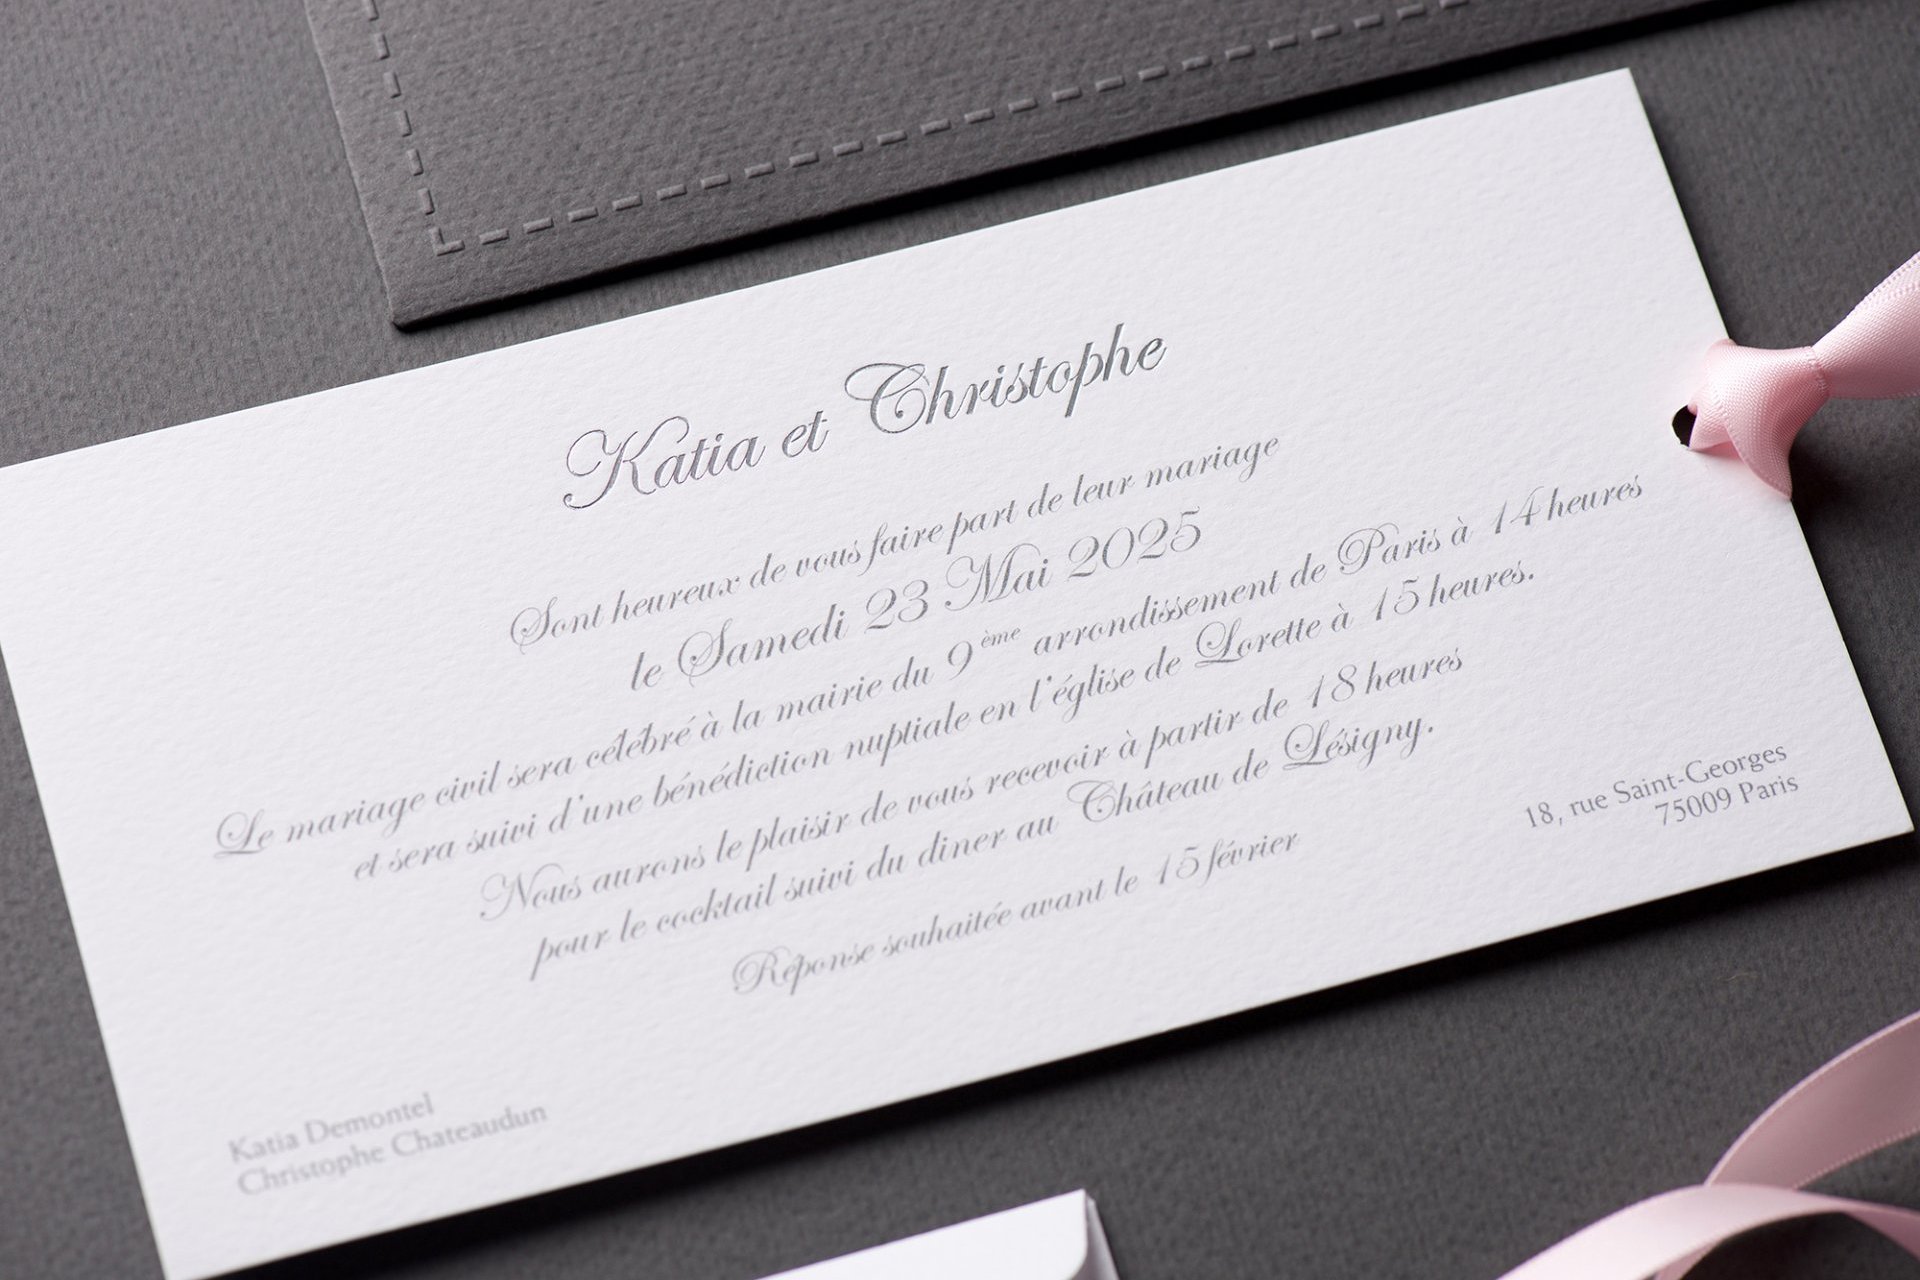 Katia et Christophe
Sont heureux de vous faire part de leur mariage
le Samedi 23 Mai 2025
Le mariage civil sera célébré à la mairie du 9ème arrondissement de Paris à 14 heures
et sera suivi d'une bénédiction nuptiale en l'église de Lorette à 15 heures.
Nous aurons le plaisir de vous recevoir à partir de 18 heures
pour le cocktail suivi du diner au Château de Lésigny.
Réponse souhaitée avant le 15 février
18, rue Saint-Georges
75009 Paris
Katia Demontel
Christophe Chateaudun